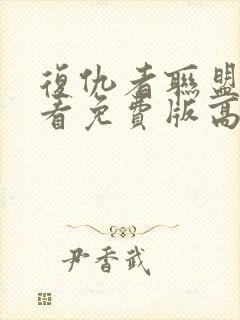 復仇者聯盟
看免費版高
尹香武